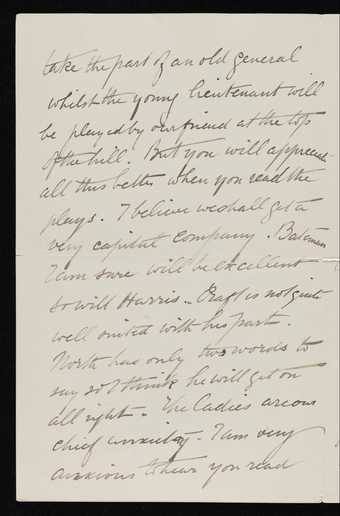 take the part of an old general
whilst the young lieutenant will
be played by our friend at the top
of the hill. But you will appreciate
all this better when you read the
plays. I believe we shall get a
very capital company. Bateman
I am sure will be excellent
so will Harris - is not quite
well suited with his part.
North has only two words to
say so I think he will get on
all right - The Ladies are our
chief anxiety - I am very
anxious to hear you read